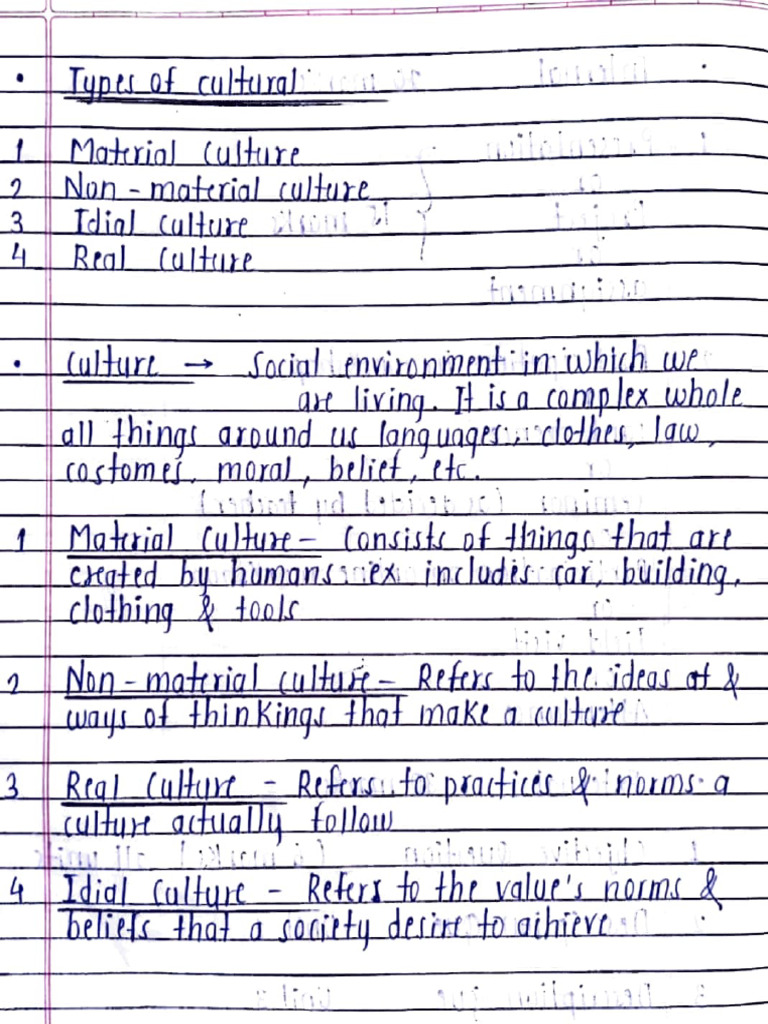 • Types of cultural
1 Material culture
2 Non-material culture
3 Idial culture
4 Real culture
• Culture → Social environment in which we
are living. It is a complex whole
all things around us languages, clothes, law,
costomes, moral, belief, etc.
1 Material Culture - Consists of things that are
created by humans ex includes car, building,
clothing & tools
2 Non-material culture - Refers to the ideas &
ways of thinkings that make a culture
3 Real Culture - Refers to practices & norms a
culture actually follow
4 Idial Culture - Refers to the value's norms &
beliefs that a society desire to achieve